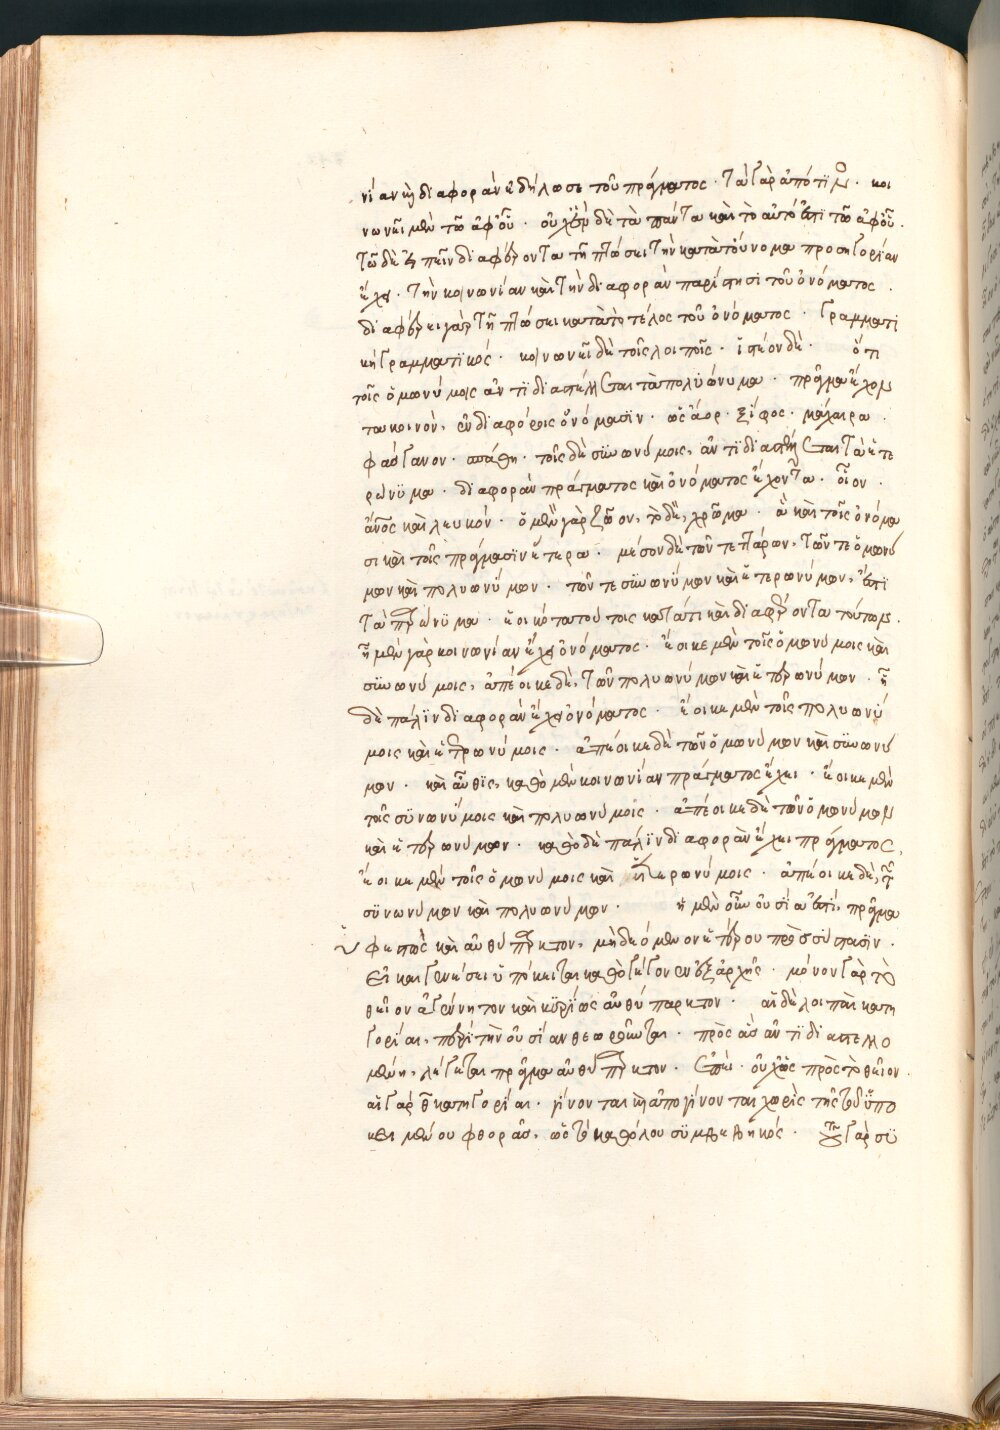 νίαν καὶ διαφορὰν ἐδήλωσε τοῦ πράγματος · τὰ γὰρ ἀπό τινος · κοι
νωνεῖ μὲν τῷ ἀφ' οὗ · οὐ χὶ δὲ τὰ πάντα καὶ τὸ αὐτό ἐστι τῷ ἀφ' οὗ ·
τῷ δὲ εἰπεῖν διαφέροντα τῇ πτώσει τὴν κατὰ τοὔνομα προσηγορίαν
ἔχει · τὴν κοινωνίαν καὶ τὴν διαφορὰν παρίστησι τοῦ ὀνόματος ·
διαφέρει γὰρ τῇ πτώσει κατὰ τὸ τέλος τοῦ ὀνόματος · γραμματι
κὴ γραμματικός · κοινωνεῖ δὲ τοῖς λοιποῖς · ἰστέον δὲ · ὅτι
τοῖς ὁμωνύμοις ἀντιδιαστέλλεται τὰ πολυώνυμα · πρᾶγμα ἔχον
τα κοινὸν, ἐν διαφόροις ὀνόμασϊν · ὡς ἄορ · ξίφος · μάχαιρα ·
φάσγανον · σπάθη · τοῖς δὲ συνωνύμοις, ἀντιδιαστέλλεται τὰ ἑτε
ρώνυμα · διαφορὰν πράγματος καὶ ὀνόματος ἔχοντα · οἷον ·
ἄνος καὶ λευκόν · ὁ μὲν γὰρ ζῷον, τὸ δὲ, χρῶμα · ἃ καὶ τοῖς ὀνόμα
σι καὶ τοῖς πράγμασϊν ἕτερα · μέσον δὲ τῶν τεττάρων, τῶν τε ὁμωνύ
μων καὶ πολυωνύμων · τῶν τε συνωνύμων καὶ ἑτερωνύμων, ἐστὶ
τὰ παρώνυμα · ἐοικότα τού τοις κατά τι καὶ διαφέροντα τούτων ·
ᾗ μὲν γὰρ κοινωνίαν ἔχει ὀνόματος · ἔοικε μὲν τοῖς ὁμωνύμοις καὶ
συνωνύμοις, ἀπέοικε δὲ, τῶν πολυωνύμων καὶ ἑτερωνύμων · ᾗ
δὲ πάλϊν διαφορὰν ἔχει ὀνόματος · ἔοικε μὲν τοῖς πολυωνύ
μοις καὶ ἑτερωνύμοις · ἀπέοικε δὲ τῶν ὁμωνύμων καὶ συνωνύ
μων · καὶ αὖθϊς, καθὸ μὲν κοινωνίαν πράγματος ἔχει · ἔοικε μὲν
τοῖς συνωνύμοις καὶ πολυωνύμοις · ἀπέοικε δὲ τῶν ὁμωνύμων
καὶ ἑτερωνύμων · καθὸ δὲ πάλϊν διαφορὰν ἔχει πράγματος,
ἔοικε μὲν τοῖς ὁμωνύμοις καὶ ἑτερωνύμοις · ἀπέοικε δὲ, τῶν
συνωνύμων καὶ πολυωνύμων · ἡ μὲν οὖν οὐσία ἐστὶ, πρᾶγμα
ὑφεστὼς καὶ αὐθύπαρκτον, μὴ δεόμενον ἑτέρου πρὸς σύστασϊν ·
εἰ καὶ γενέσει ὑπόκειται καθὸ γέγονεν ἐξ ἀρχῆς · μόνον γὰρ τὸ
θεῖον ἀγέννητον καὶ κυρίως αὐθύπαρκτον · αἱ δὲ λοιπαὶ κατη
γορίαι, περὶ τὴν οὐσίαν θεωροῦνται · πρὸς ἃς ἀντιδιαστελλο
μένη, λέγεται πρᾶγμα αὐθύπαρκτον · ἐπεὶ · οὐχ ὡς πρὸς τὸ θεῖον ·
αἱ γὰρ θ κατηγορίαι · γίνονται καὶ ἀπογίνονται χωρὶς τῆς τοῦ ὑπο
κειμένου φθορᾶς, ὡς τὸ καθόλου συμβεβηκός · γὰρ συ